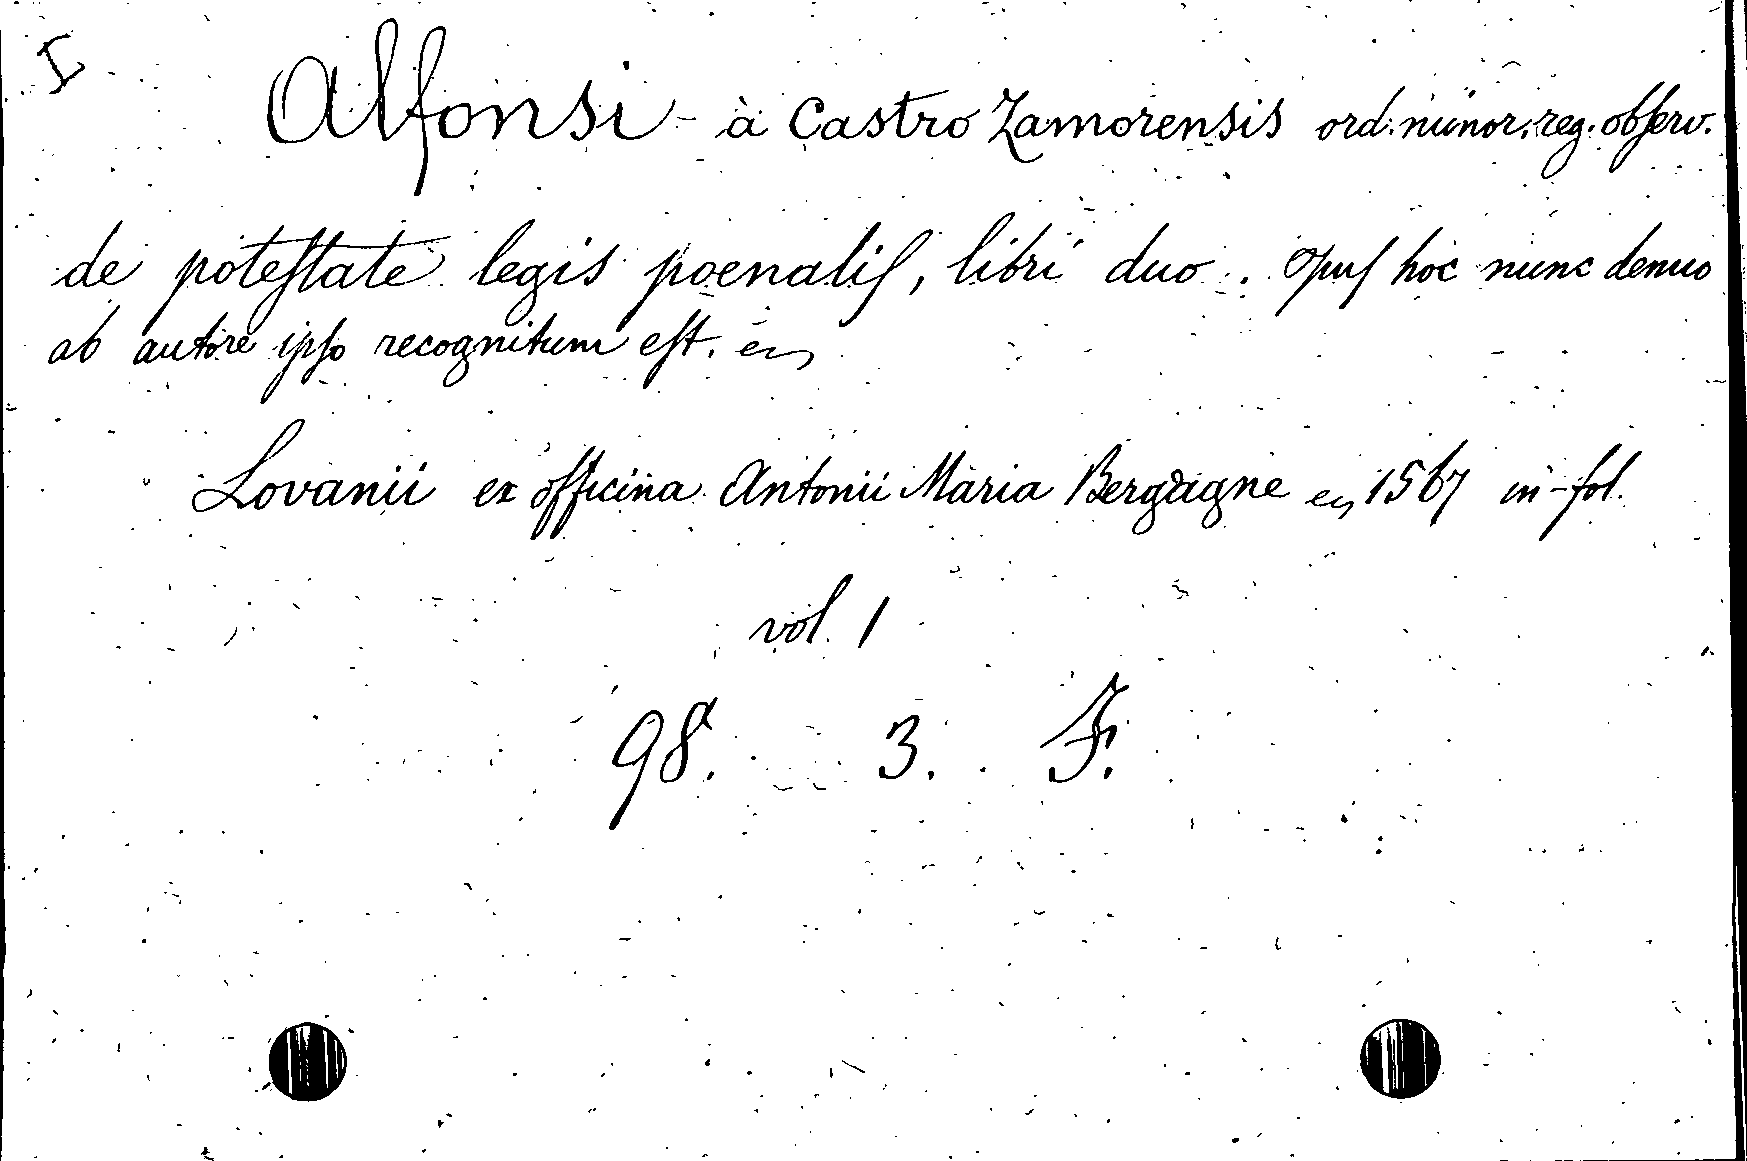 I
Alfonsi à Castro Zamorensis ord. minor. reg. obſerv.
de poteſtate legis poenaliſ, libri duo. Opuſ hoc nunc denuo
ab autore ipſo recognitum eſt.
Lovanii ex officina Antonii Maria Bergagne 1567 in-fol.
vol. 1
98. 3. F.